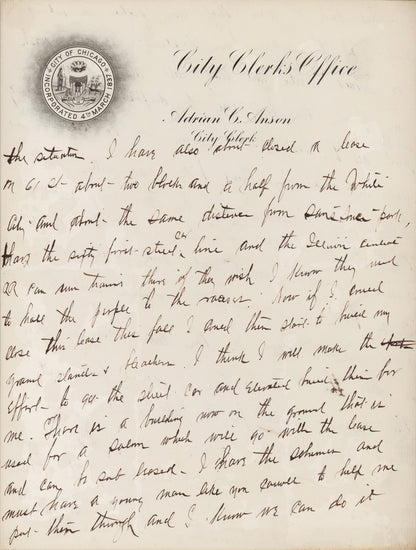 CITY OF CHICAGO
INCORPORATED 4TH MARCH 1837
City Clerk's Office
Adrian C. Anson
City Clerk
the situation. I have also about closed a lease
on 61 St about two blocks and a half from the White
City and about the same distance from park,
have the sixty first street car line and the Illinois central
RR can run trains there if they wish I know they used
to haul the people to the races. Now if I could
close this lease this fall I could then start to build my
grand stands & bleachers I think I will make the
Effort to get the street car and Elevated build them for
me. There is a building now on the ground that is
used for a saloon which will go with the lease
and can be sub leased. I have the schemes and
must have a young man like you to help me
put them through and I know we can do it